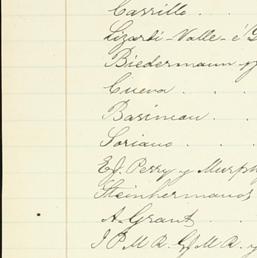 Carrillo . . .
Lizardi - Valle - é G
Biedermann y
Cueva . . .
Basimau . . .
Soriano . .
Ed. Perry y Murphy
Steinhermanos
A. Grant . . .
J P M R. G J M R. y